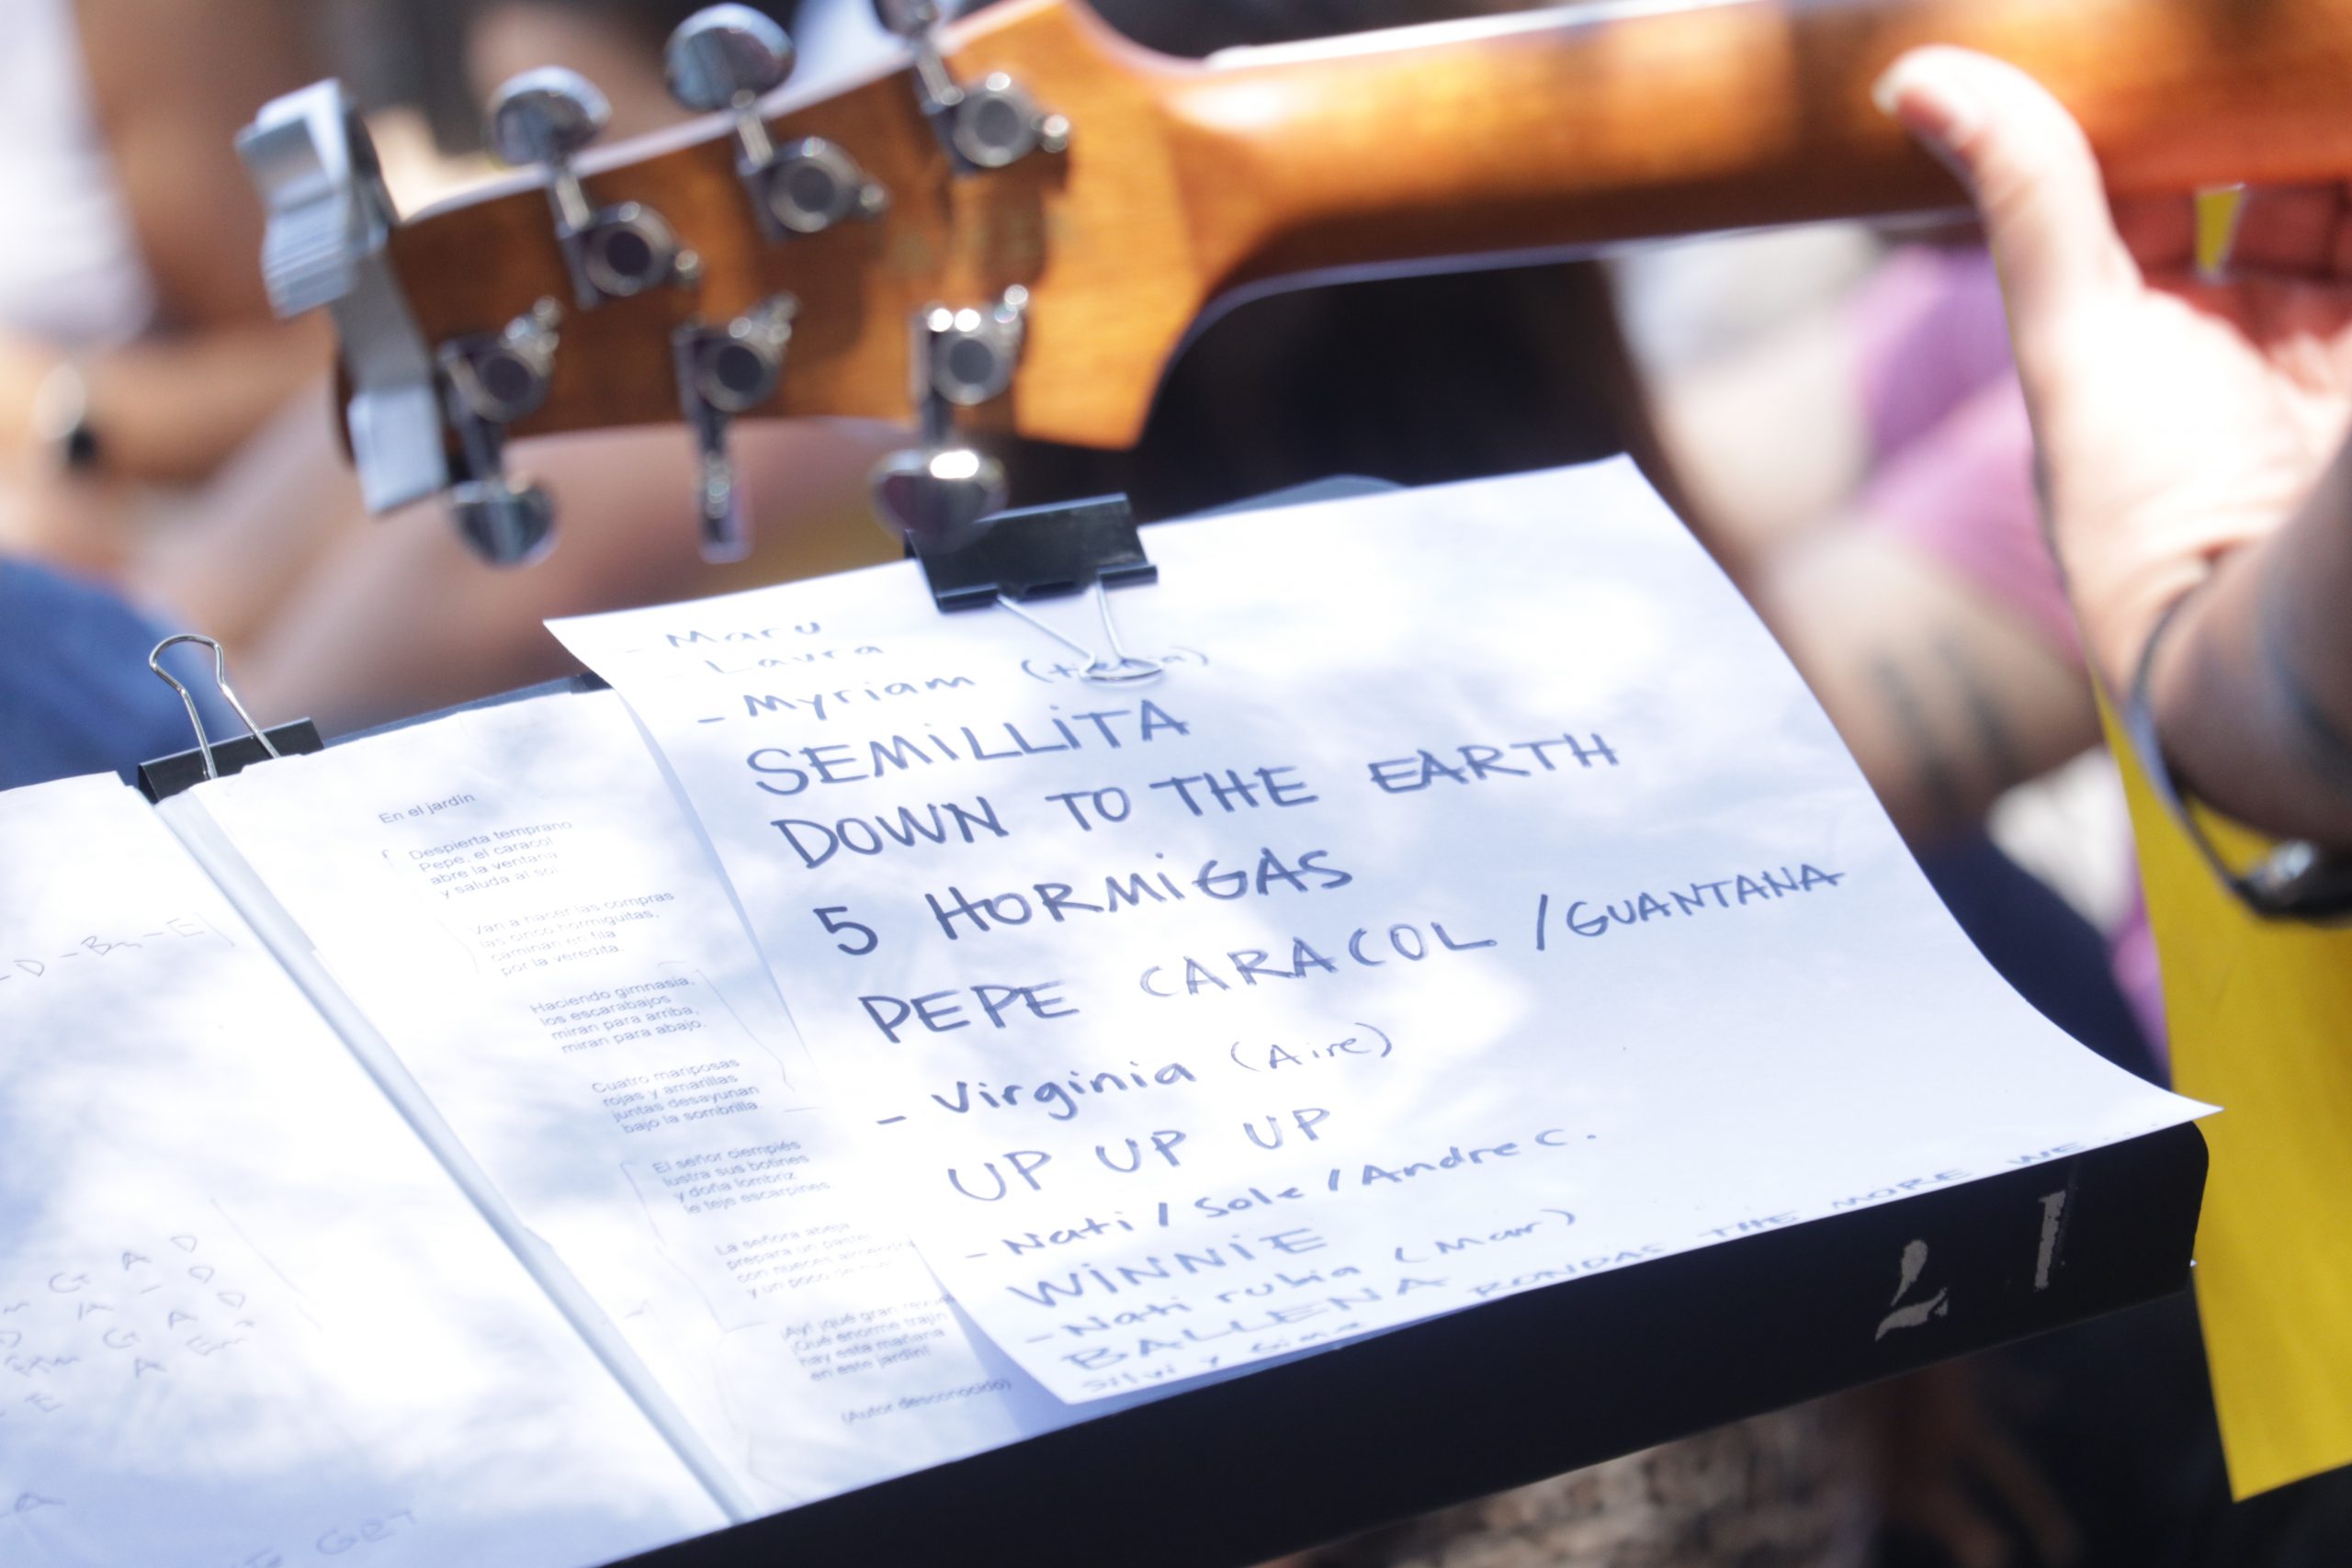 - Maru
- Laura
- Myriam
SEMiLLiTA
DOWN TO THE EARTH
5 HORMiGAS
PEPE CARACOL /GUANTANA
- Virginia (Aire)
UP UP UP
- Nati / Sole / Andre C.
WiNNiE
- Nati rubia (Mar)
BALLENA RONDAS THE MORE WE
Silvi y Gime
En el jardín
Despierta temprano
Pepe, el caracol
abre la ventana
y saluda al sol
Van a hacer las compras
las cinco hormiguitas,
caminan en fila
por la veredita.
Haciendo gimnasia,
los escarabajos
miran para arriba,
miran para abajo.
Cuatro mariposas
rojas y amarillas
juntas desayunan
bajo la sombrilla.
El señor ciempiés
lustra sus botines
y doña lombriz
le teje escarpines.
La señora abeja
prepara un
con nueces
y un poco de
¡Ay! ¡qué gran
¡Qué enorme trajín
hay esta mañana
en este jardín!
(Autor desconocido)
D-Bm-E
G A D
A - D
G A D
E A Em
E
A
GET
21